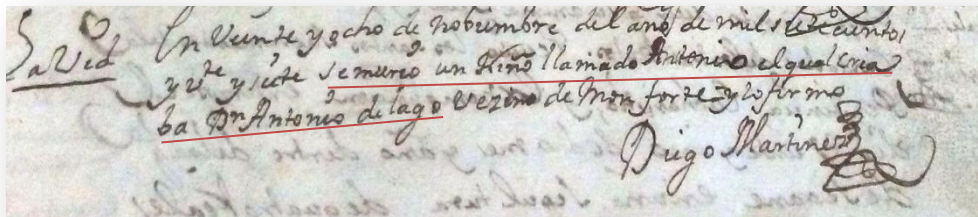 En Veinte y ocho de nobiembre del año de mil setecientos
La Vid y vte y siete se murio un Niño llamado Antonio el qual cria
ba Dn Antonio de lago Vezino de Monforte y lo firmo
Diego Martinez